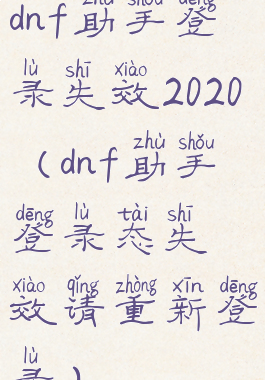 dnf助手登
录失效2020
(dnf助手
登录态失
效请重新登
录)